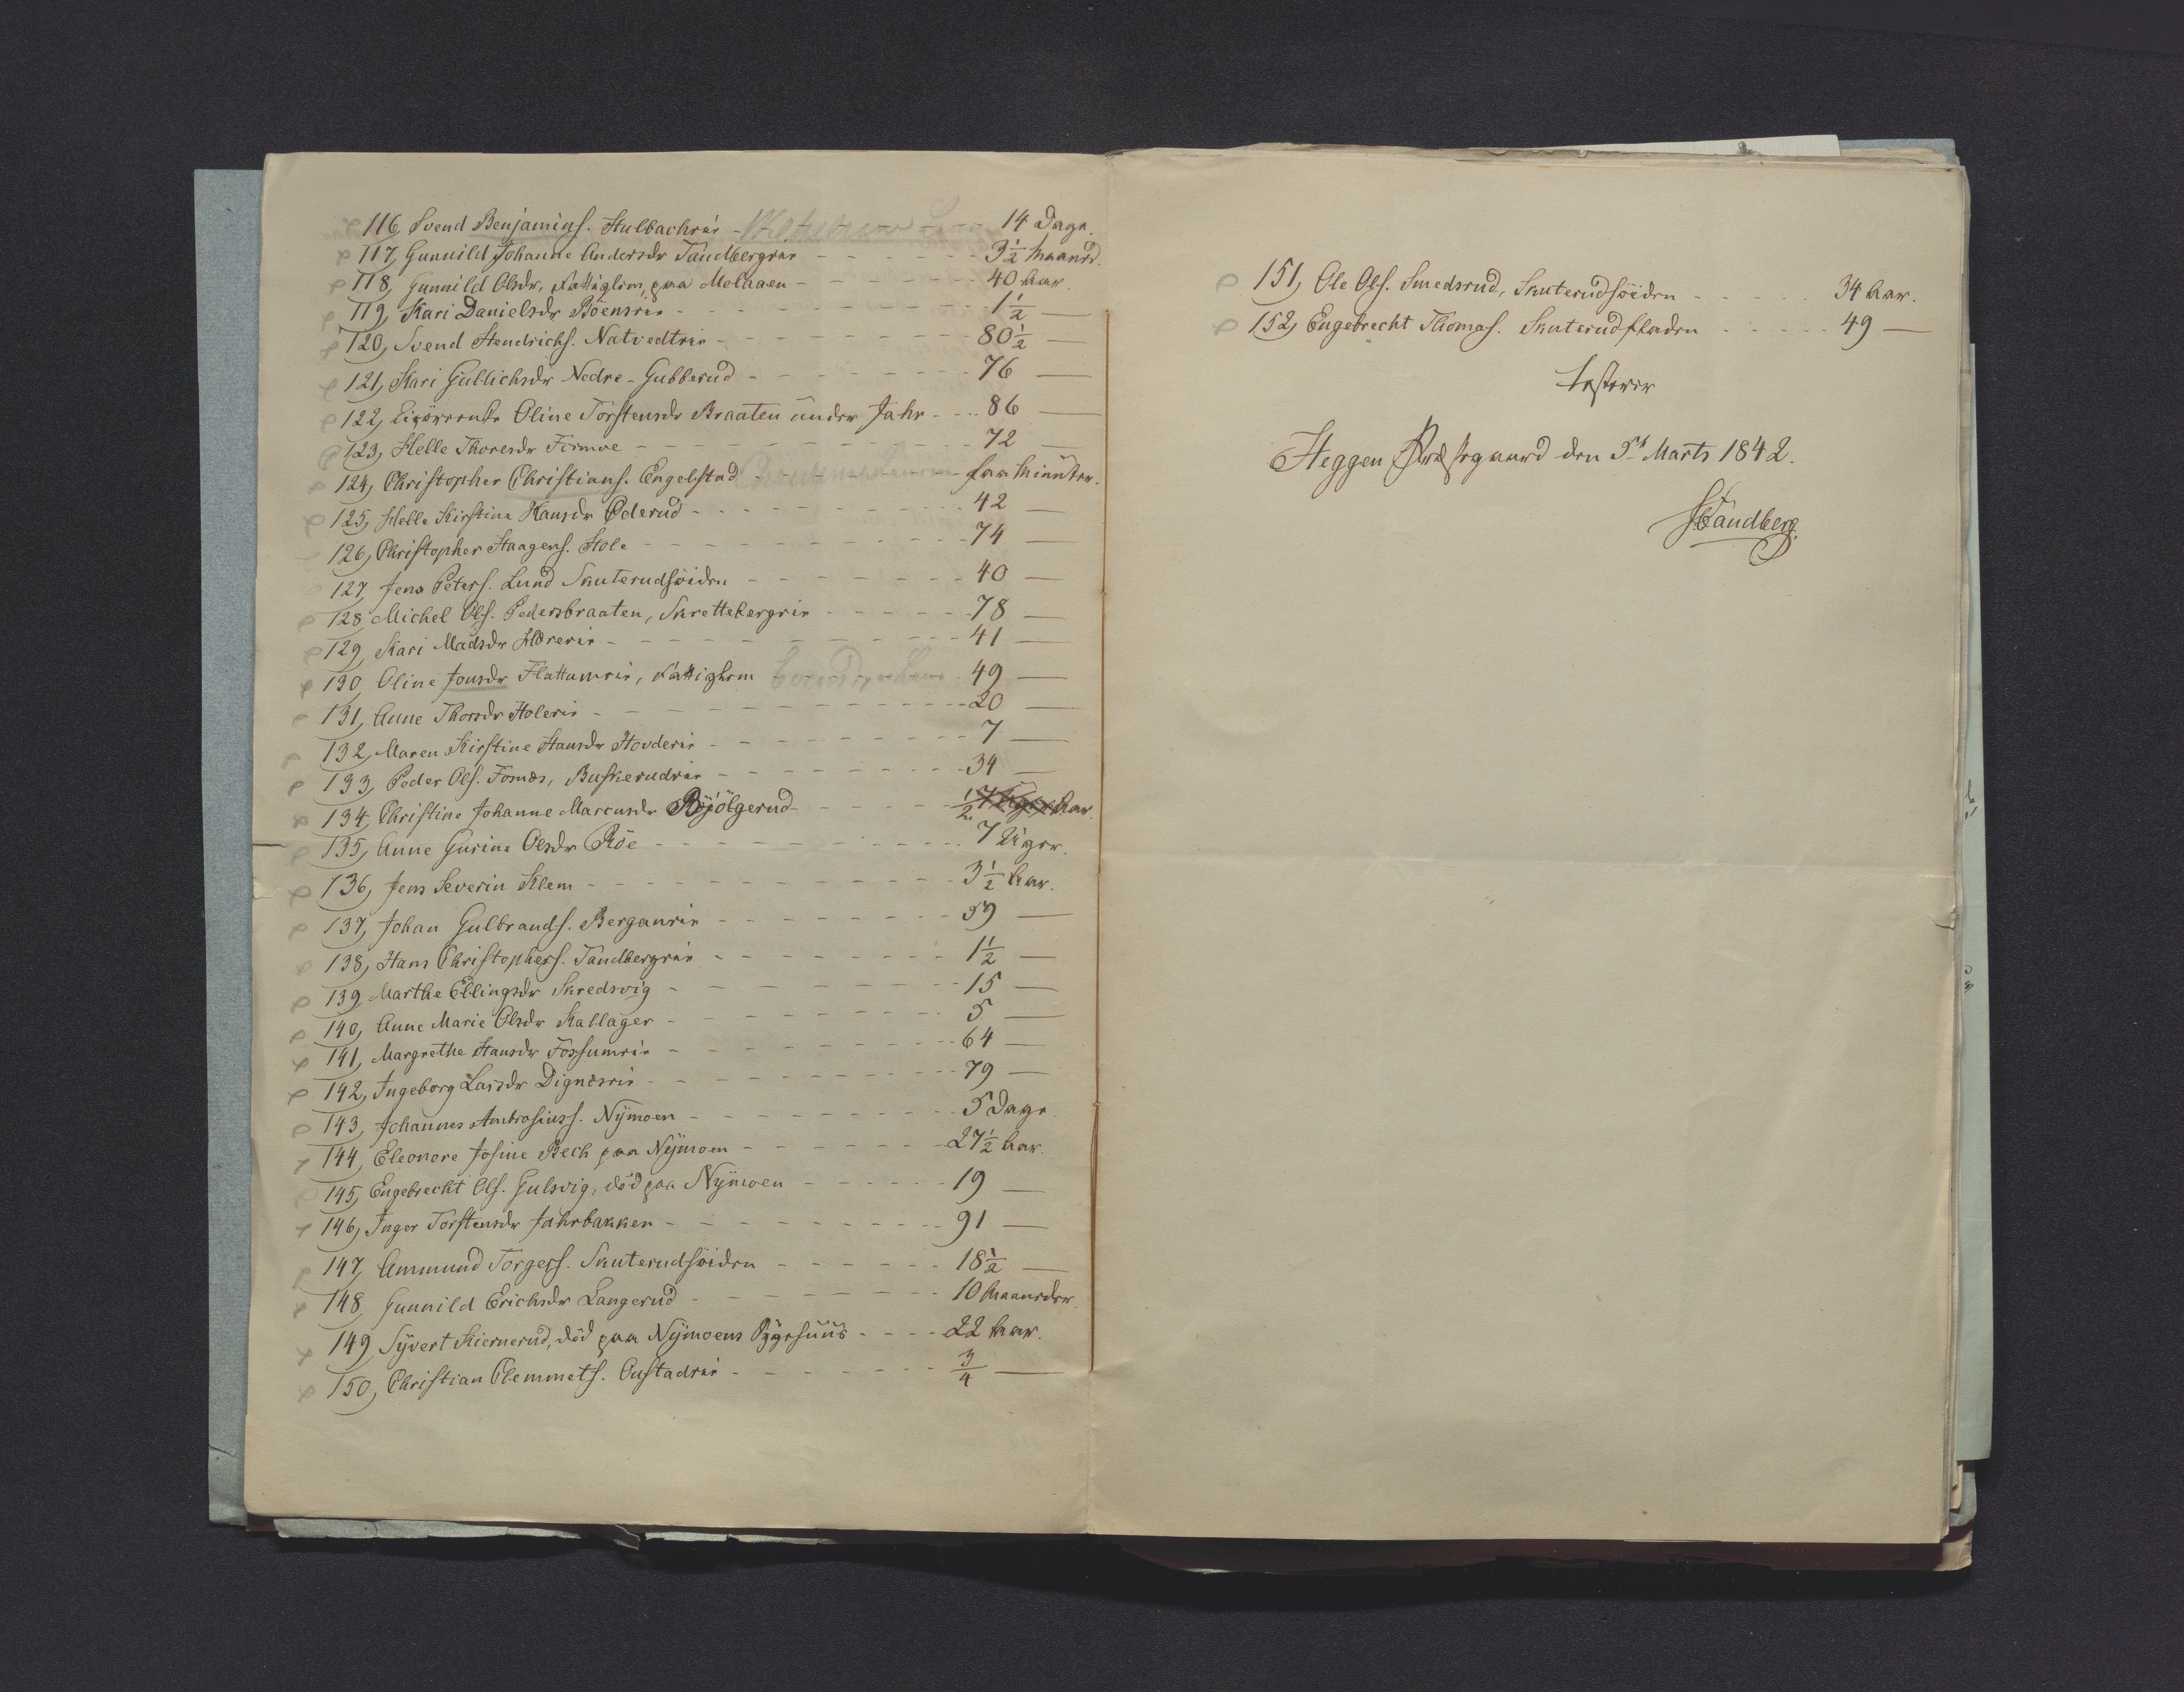 116, Svend Benjamins. Hulbackeie - - - - 14 Dage.
117, Gunnild Johanne Andersdr Tandbergeie - - - - 3½ Maaned.
118, Gunnild Olsdr, Fattiglem, paa Melaaen - - - - 40 Aar.
119, Kari Danielsdr Böenseie - - - - 1½ —
120, Svend Hendrichs. Natvedteie - - - - 80½ —
121, Kari Gullichsdr Nedre-Gubberud - - - - 76 —
122, Oline Torstensdr Braaten under Jahr - - - - 86 —
123, Helle Thoresdr Formoe - - - - 72 —
124, Christopher Christians. Engelstad - - - - faa Minuter.
125, Helle Kirstine Hansdr Ederud - - - - 42 —
126, Christopher Haagens. Hole - - - - 74 —
127, Jens Peters. Lund Skuterudsöiden - - - - 40 —
128, Michel Ols. Pedersbraaten, Skrettebergeie - - - - 78 —
129, Kari Madsdr - - - - 41 —
130, Oline Jonsdr Flattumeie, Fattiglem - 49 —
131, Anne Thorsdr Holeeie - - - - 20 —
132, Maren Kirstine Hansdr Hovdeeie - - - - 7 —
133, Peder Ols. Fosnæs, Buskerudeie - - - - 34 —
134, Christine Johanne Marcusdr Bjölgerud - - - - ½ 7 Uger Aar.
135, Anne Gurine Olsdr Röe - - - - 7 Uger.
136, Jens Severin Klem - - - - 3½ Aar.
137, Johan Gulbrands. Berganeie - - - - 59 —
138, Hans Christophers. Tandbergeie - - - - 1½ —
139, Marthe Ellingsdr Skredsvig - - - - 15 —
140, Anne Marie Olsdr Kallager - - - - 5 —
141, Margrethe Hansdr Fossumeie - - - - 64 —
142, Ingeborg Larsdr Dignæseie - - - - 79 —
143, Johannes Ambrosiuss. Nÿmoen - - - - 5 Dage.
144, Eleonore Josine Beck paa Nÿmoen - - - - 27½ Aar.
145, Engebrecht Ols. Gulsvig, död paa Nÿmoen - - - - 19 —
146, Inger Torstensdr Jahrbakken - - - - 91 —
147, Ammund Torgers. Skuterudsöiden - - - - 18½ —
148, Gunnild Erichsdr Langerud - - - - 10 Maaneder.
149, Sÿvert Kiernerud, död paa Nÿmoens Sÿgehuus - - - - 22 Aar.
150, Christian Clemmets. Oustadeie - - - - ¾ —
151, Ole Ols. Smedsrud, Skuterudsöiden - - - - 34 Aar.
152, Engebrecht Thomas. Skuterudfladen - - - - 49 —
testerer
Heggen Præstegaard den 5t Marts 1842.
Sandberg.